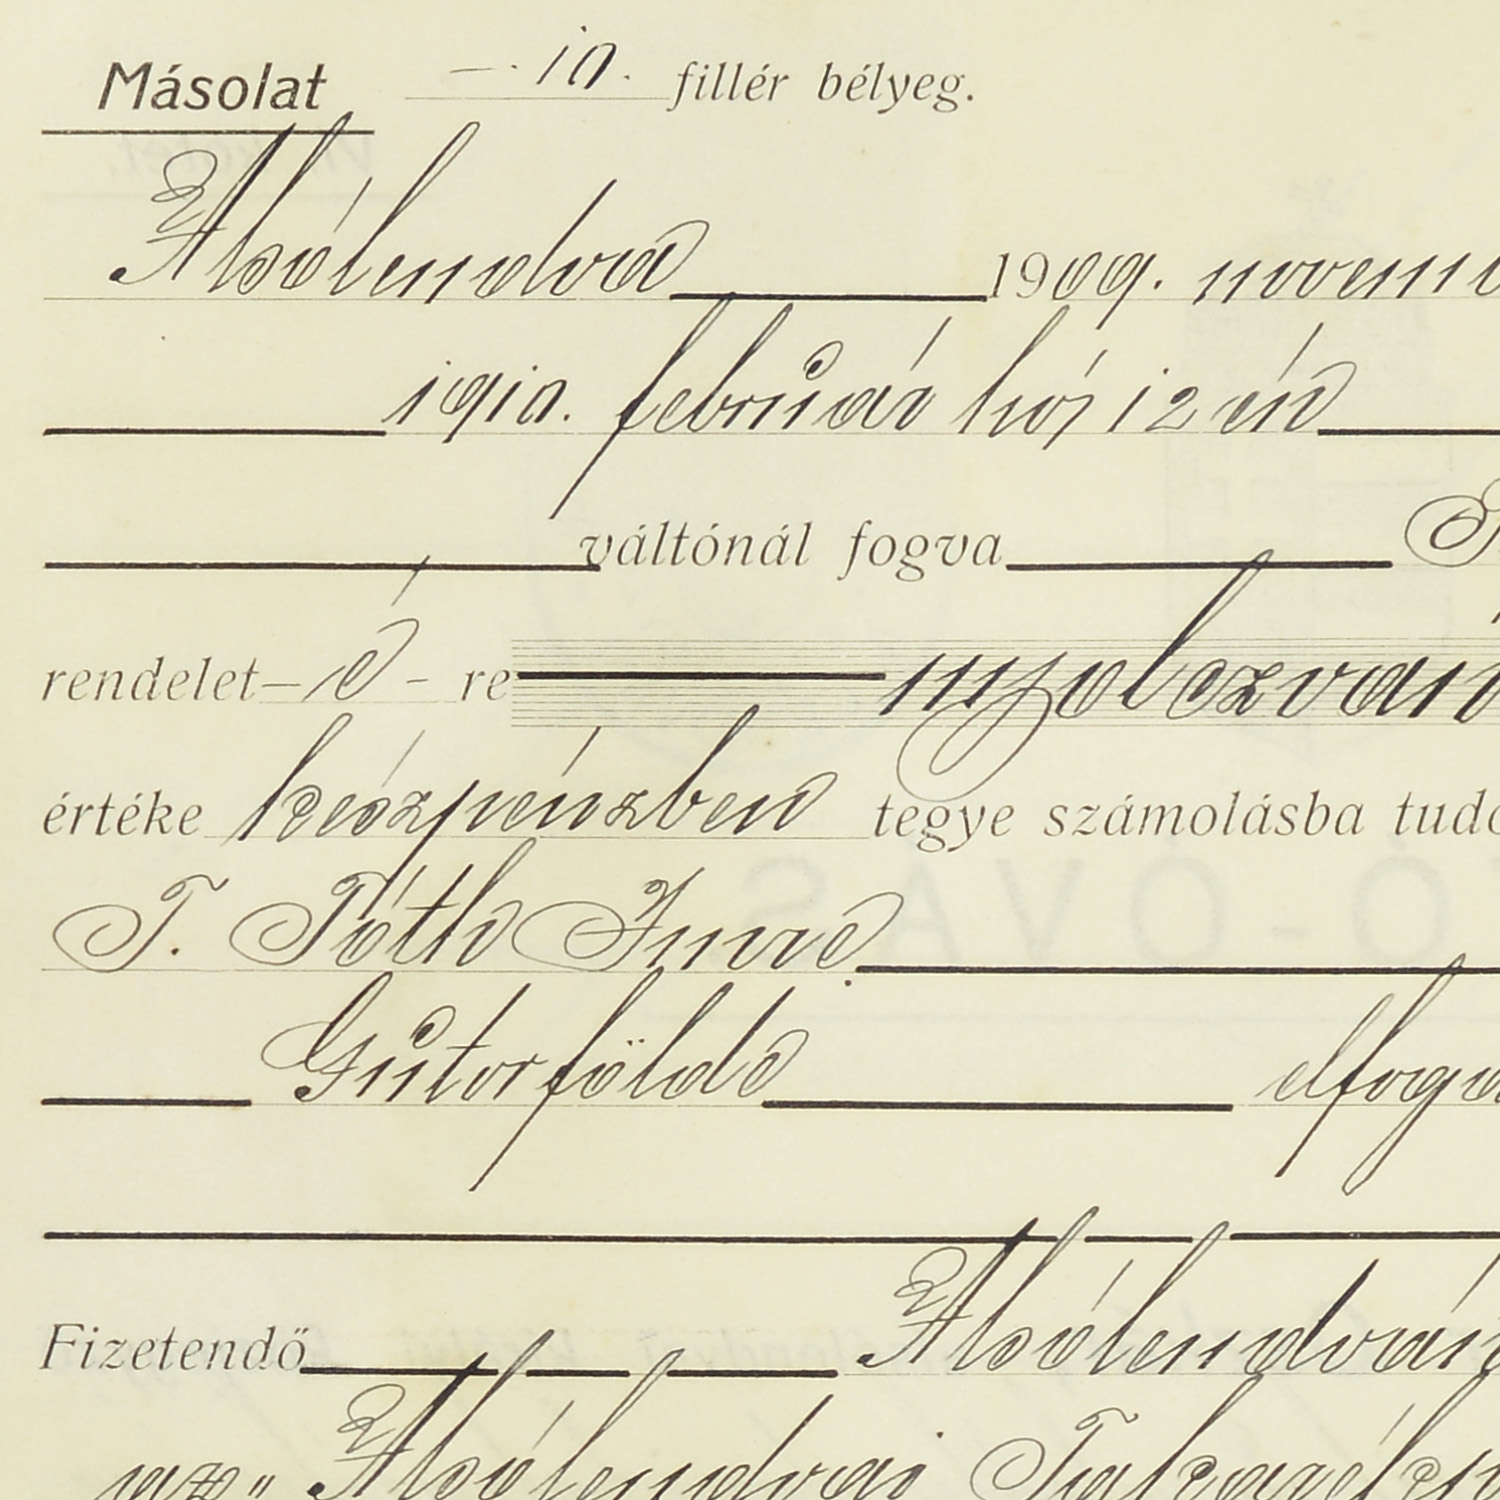 Másolat —. 10. fillér bélyeg.
Alsólendva 1909. novem
1910. február hó 12 én
váltónál fogva
rendelet – é – re nyolczvan
értéke készpénzben tegye számolásba tudó
T. Tóth Imre
Gutorfölde elfoga
Fizetendő Alsólendván
az „Alsólendvai Takarékpén